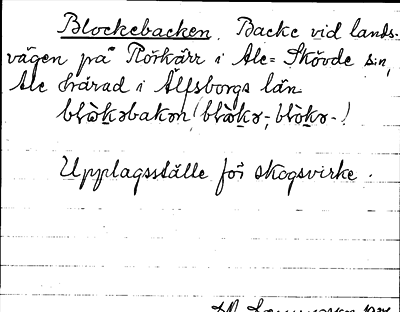 Blockebacken. Backe vid lands-
vägen på Rörkärr i Ale-Skövde sn,
Ale härad i Älfsborgs län
Upplagsställe för skogsvirke.